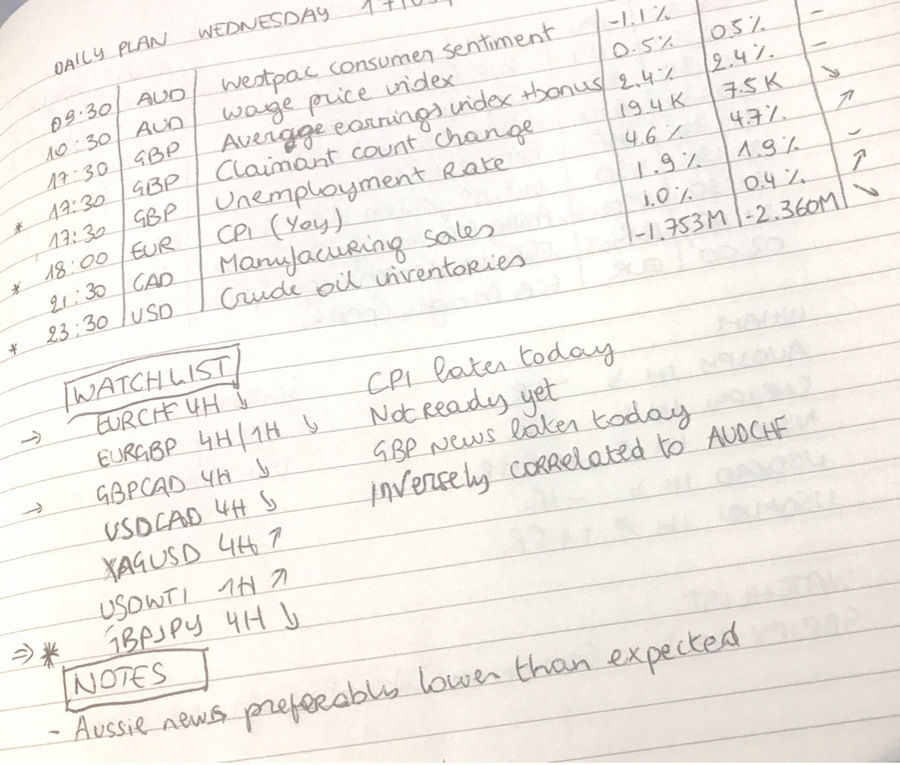 DAILY PLAN WEDNESDAY
09:30 AUD Westpac consumer sentiment -1.1%
10:30 AUD wage price index 0.5% 05% –
17:30 GBP Average earnings index +bonus 2.4% 2.4% –
* 17:30 GBP Claimant count change 19.4K 7.5K ↘
17:30 GBP Unemployment Rate 4.6% 4.7% ↗
* 18:00 EUR CPI (YoY) 1.9% 1.9% –
21:30 CAD Manufacuring sales 1.0% 0.4% ↗
* 23:30 USD Crude oil inventories -1.753M -2.360M ↘
WATCHLIST
→ EURCHF 4H ↘ CPI later today
EURGBP 4H/1H ↘ Not Ready yet
→ GBPCAD 4H ↘ GBP News later today
USDCAD 4H ↘ inversely correlated to AUDCHF
XAGUSD 4H ↗
USOWTI 1H ↗
⇒ * GBPJPY 4H ↘
NOTES
- Aussie news preferably lower than expected